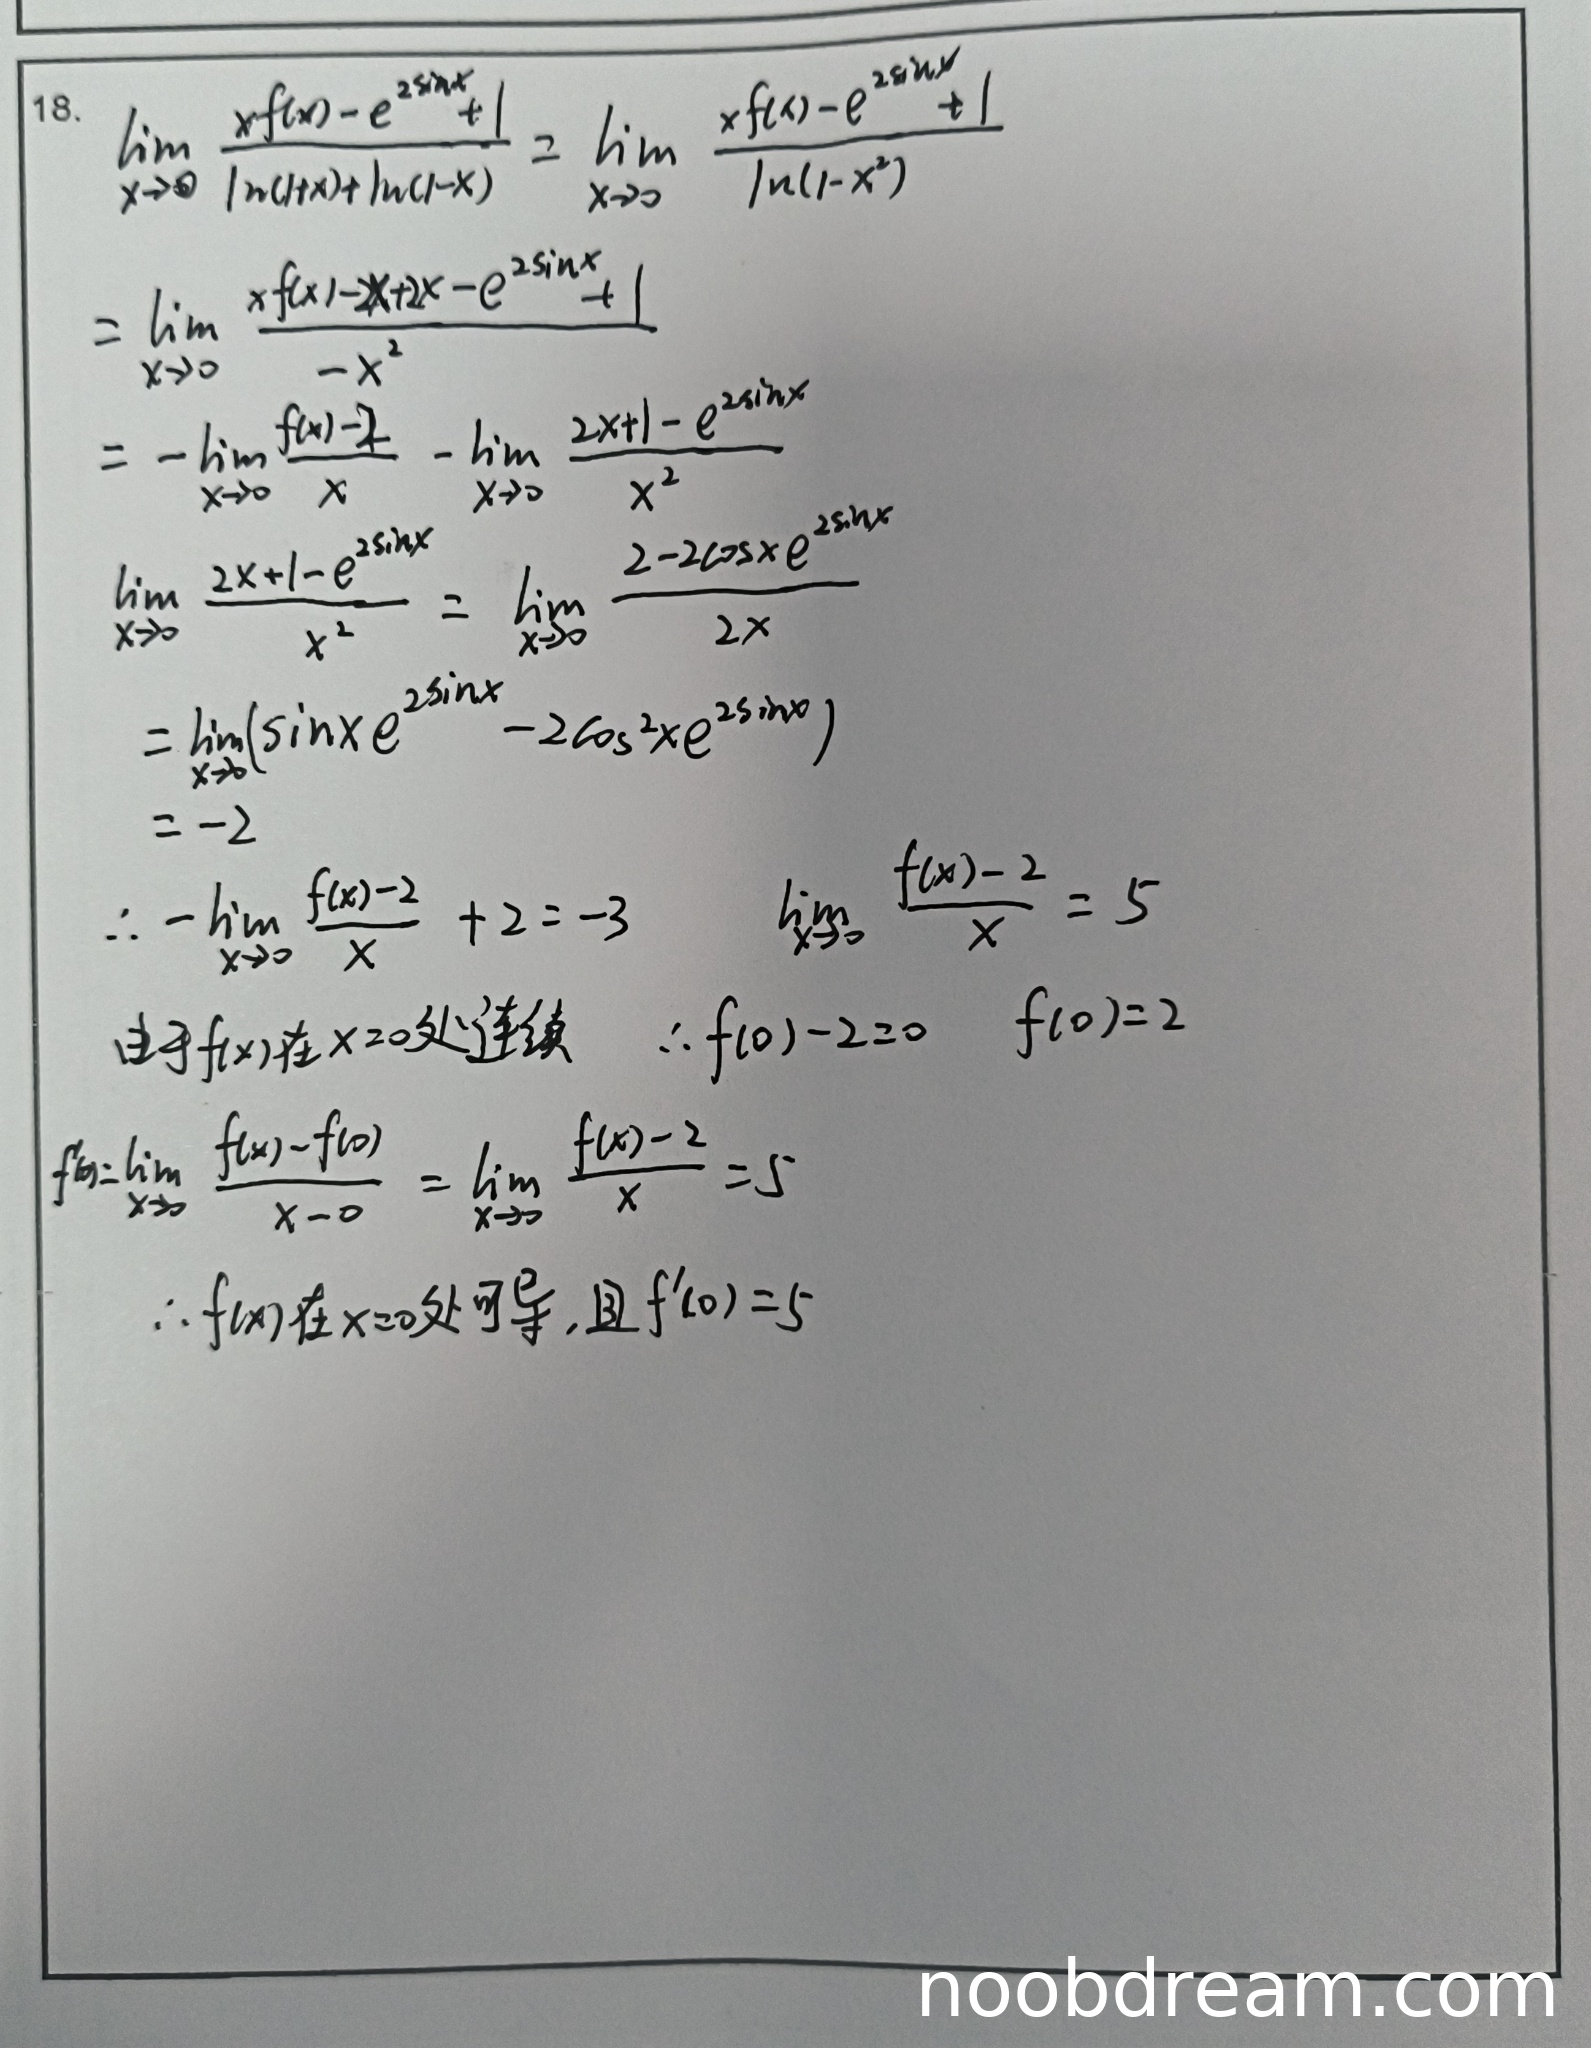 18. lim_{x→0} (xf(x) - e^{2sinx} + 1)/(ln(1+x) + ln(1-x)) = lim_{x→0} (xf(x) - e^{2sinx} + 1)/(ln(1-x²))
= lim_{x→0} (xf(x) - 2x + 2x - e^{2sinx} + 1)/(-x²)
= -lim_{x→0} (f(x) - 2)/x - lim_{x→0} (2x + 1 - e^{2sinx})/x²
lim_{x→0} (2x + 1 - e^{2sinx})/x² = lim_{x→0} (2 - 2cosx e^{2sinx})/(2x)
= lim_{x→0} (sinx e^{2sinx} - 2cos²x e^{2sinx})
= -2
∴ -lim_{x→0} (f(x) - 2)/x + 2 = -3 lim_{x→0} (f(x) - 2)/x = 5
由于f(x)在x=0处连续 ∴ f(0) - 2 = 0 f(0) = 2
f'(0) = lim_{x→0} (f(x) - f(0))/(x - 0) = lim_{x→0} (f(x) - 2)/x = 5
∴ f(x)在x=0处可导,且f'(0) = 5
noobdream.com